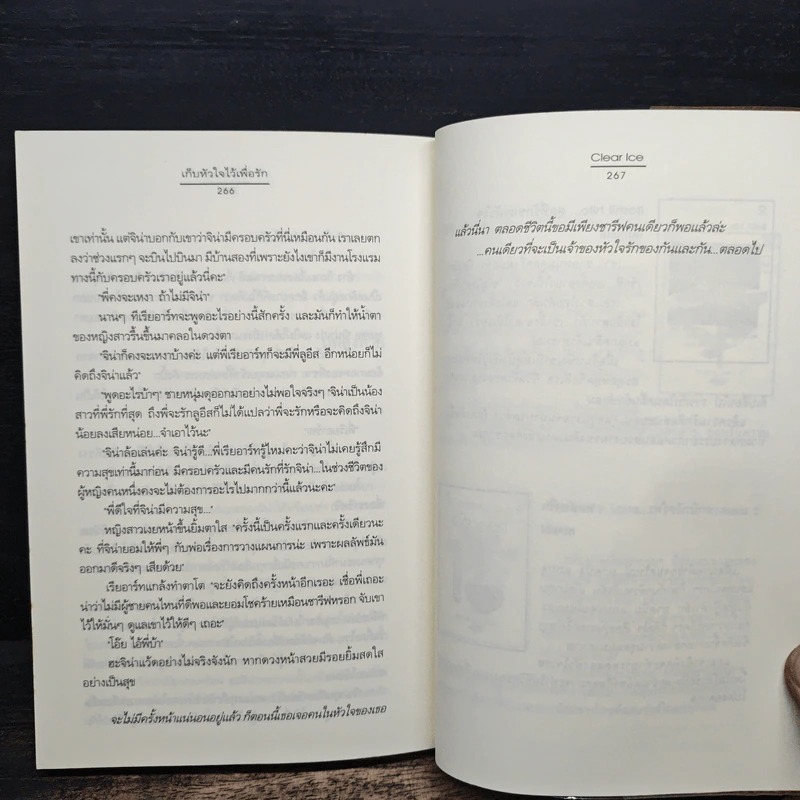 เก็บหัวใจไว้เพื่อรัก
266
เขาเท่านั้น แต่จิน่าบอกกับเขาว่าจิน่ามีครอบครัวที่นี่เหมือนกัน เราเลยตก
ลงว่าช่วงแรกๆ จะบินไปบินมา มีบ้านสองที่เพราะยังไงเขาก็มีงานโรงแรม
ทางนี้กับครอบครัวเราอยู่แล้วนี่คะ”
“พี่คงจะเหงา ถ้าไม่มีจิน่า”
นานๆ ทีเรียอาร์ทจะพูดอะไรอย่างนี้สักครั้ง และมันก็ทำให้น้ำตา
ของหญิงสาวรื้นขึ้นมาคลอในดวงตา
“จิน่าก็คงจะเหงาบ้างค่ะ แต่พี่เรียอาร์ทก็จะมีพี่ลูอีส อีกหน่อยก็ไม่
คิดถึงจิน่าแล้ว”
“พูดอะไรบ้าๆ” ชายหนุ่มดุออกมาอย่างไม่พอใจจริงๆ “จิน่าเป็นน้อง
สาวที่พี่รักที่สุด ถึงพี่จะรักลูอีสก็ไม่ได้แปลว่าพี่จะรักหรือจะคิดถึงจิน่า
น้อยลงเสียหน่อย...จำเอาไว้นะ”
“จิน่าล้อเล่นค่ะ จิน่ารู้ดี...พี่เรียอาร์ทรู้ไหมคะว่าจิน่าไม่เคยรู้สึกมี
ความสุขเท่านี้มาก่อน มีครอบครัวและมีคนรักที่รักจิน่า...ในช่วงชีวิตของ
ผู้หญิงคนหนึ่งคงจะไม่ต้องการอะไรไปมากกว่านี้แล้วนะคะ”
“พี่ดีใจที่จิน่ามีความสุข...”
หญิงสาวเงยหน้าขึ้นยิ้มตาใส “ครั้งนี้เป็นครั้งแรกและครั้งเดียวนะ
คะ ที่จิน่ายอมให้พี่ๆ กับพ่อเรื่องการวางแผนการน่ะ เพราะผลลัพธ์มัน
ออกมาดีจริงๆ เสียด้วย”
เรียอาร์ทแกล้งทำตาโต “จะยังคิดถึงครั้งหน้าอีกเรอะ เชื่อพี่เถอะ
น่าว่าไม่มีผู้ชายคนไหนที่ดีพอและยอมโชคร้ายเหมือนชารีฟหรอก จับเขา
ไว้ให้มั่นๆ ดูแลเขาไว้ให้ดีๆ เถอะ”
“โอ๊ย ไอ้พี่บ้า”
ฮะจิน่าแว้ดอย่างไม่จริงจังนัก หากดวงหน้าสวยมีรอยยิ้มสดใส
อย่างเป็นสุข
จะไม่มีครั้งหน้าแน่นอนอยู่แล้ว ก็ตอนนี้เธอเจอคนในหัวใจของเธอ
Clear Ice
267
แล้วนี่นา ตลอดชีวิตนี้ขอมีเพียงชารีฟคนเดียวก็พอแล้วล่ะ
...คนเดียวที่จะเป็นเจ้าของหัวใจรักของกันและกัน...ตลอดไป